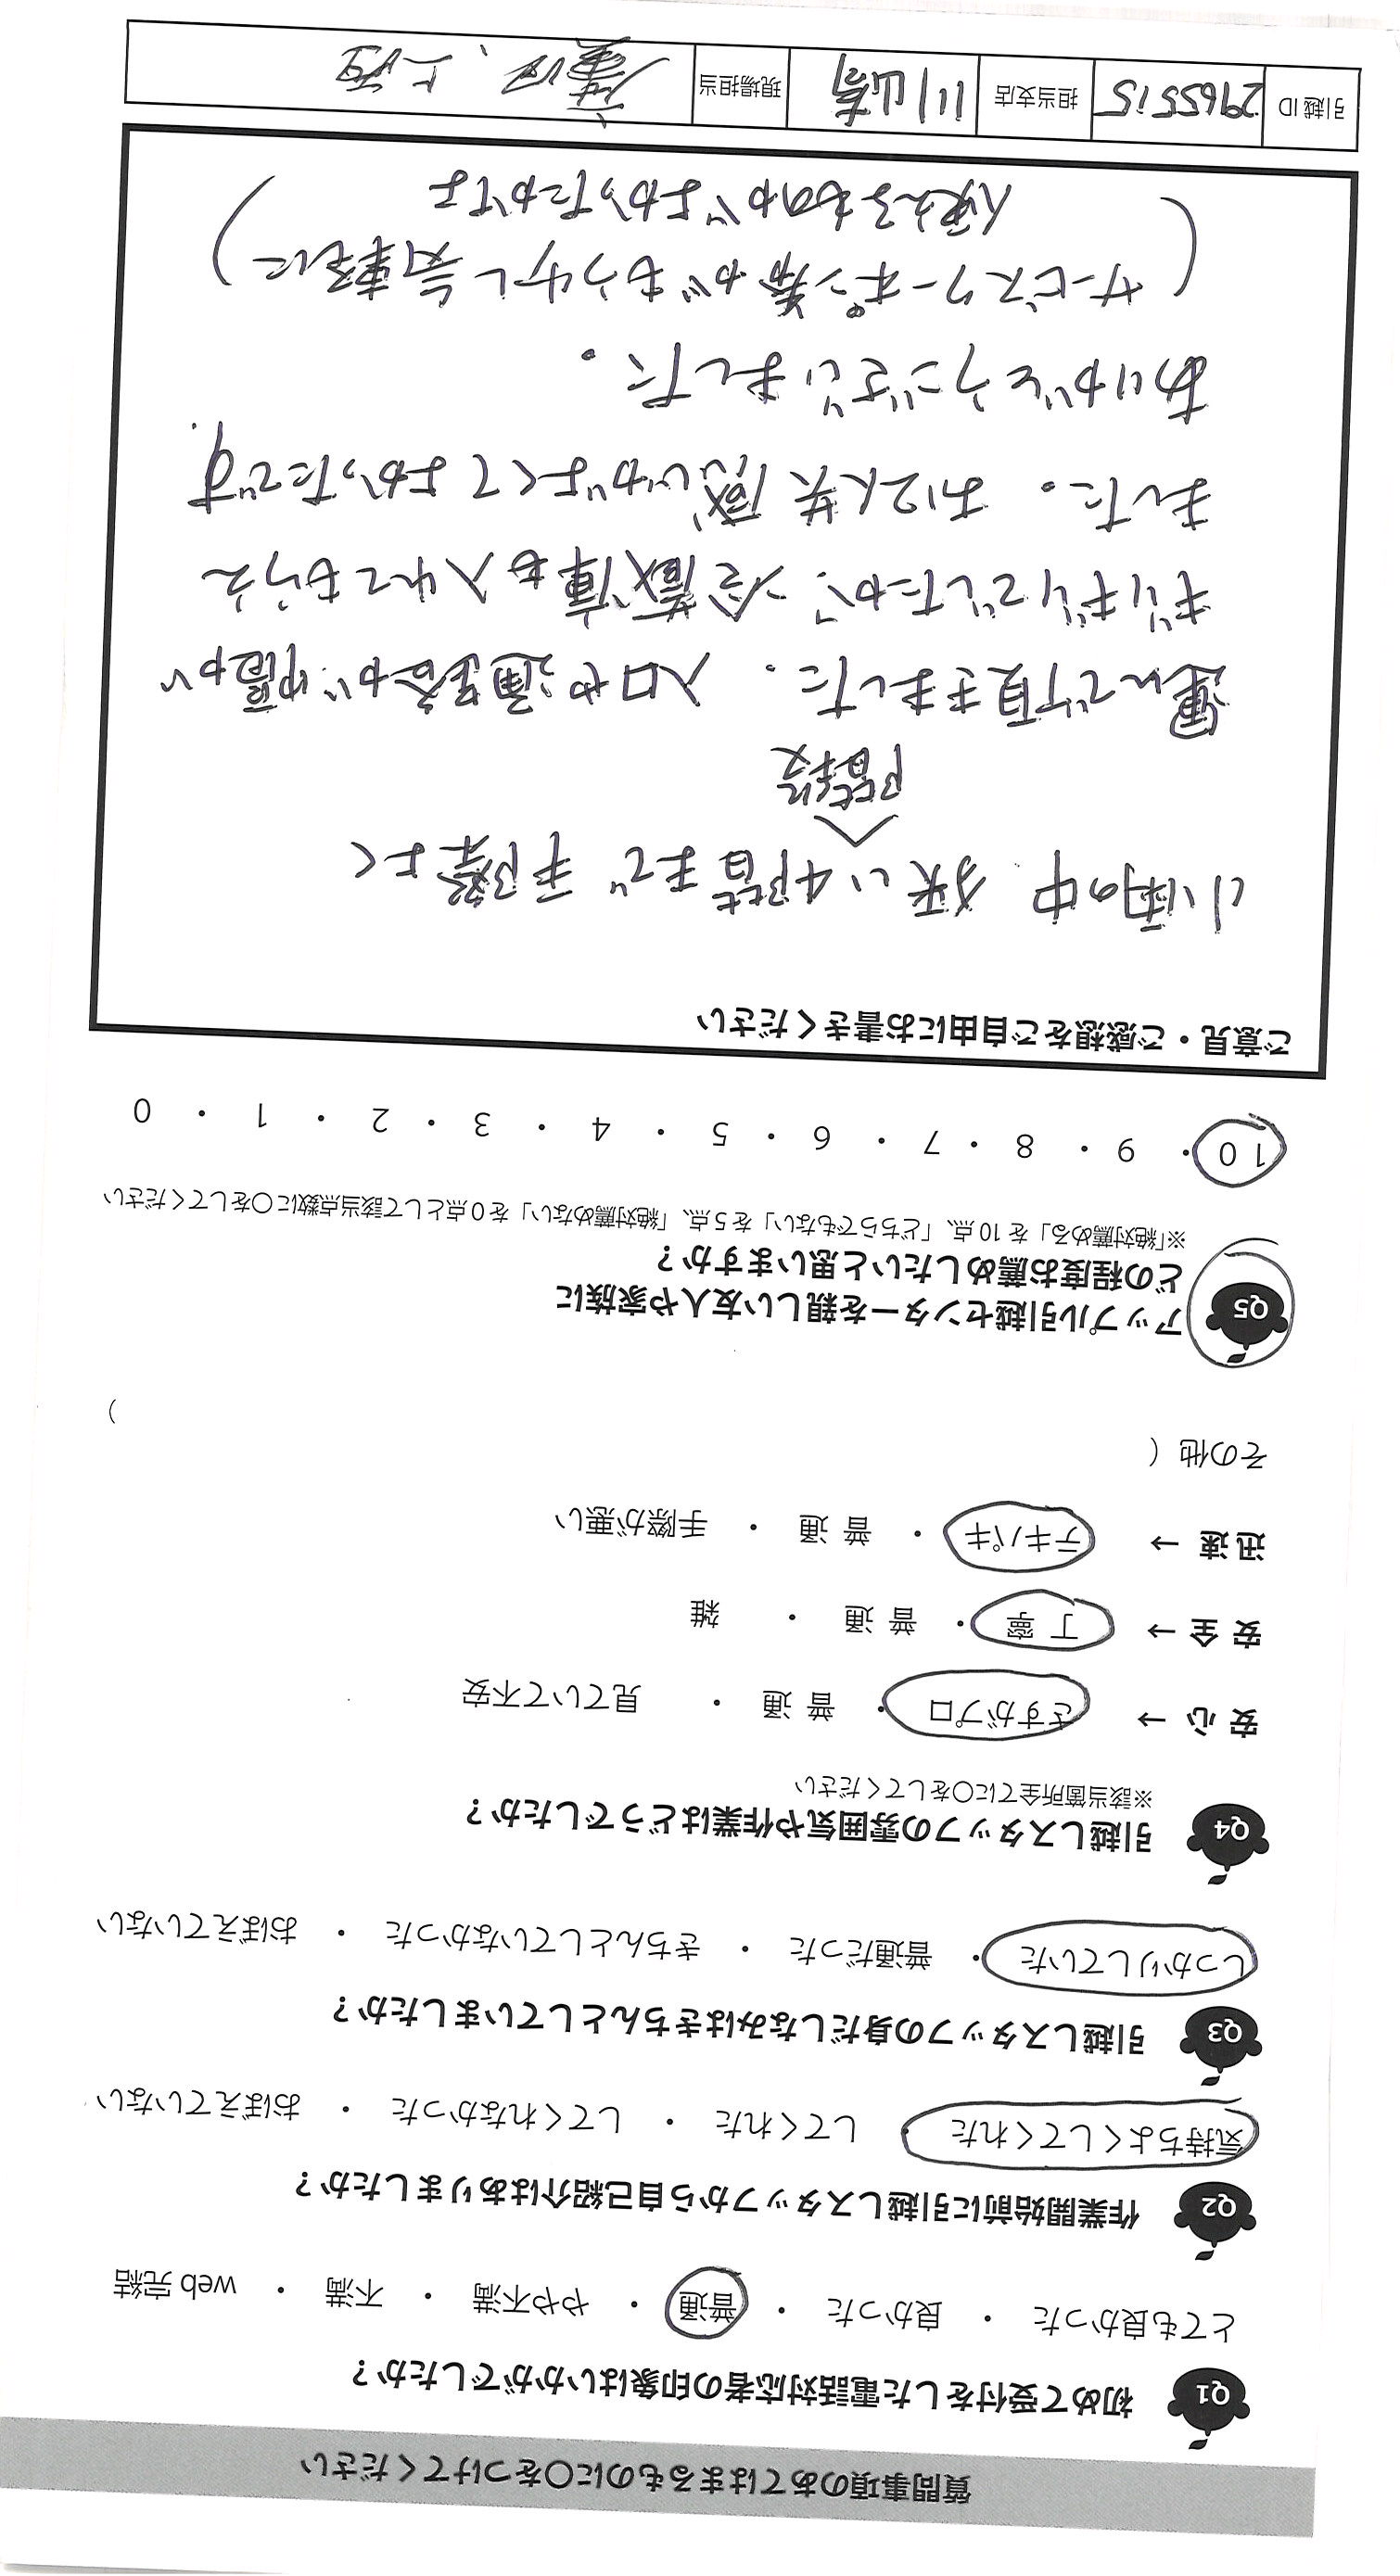 質問事項のあてはまるものに〇をつけてください
Q1 初めて受付をした電話対応者の印象はいかがでしたか？
とても良かった ・ 良かった ・ 普通 ・ やや不満 ・ 不満 ・ web 完結
Q2 作業開始前に引越しスタッフから自己紹介はありましたか？
気持ちよくしてくれた してくれた ・ してくれなかった ・ おぼえていない
Q3 引越しスタッフの身だしなみはきちんとしていましたか？
しっかりしていた ・ 普通だった ・ きちんとしていなかった ・ おぼえていない
Q4 引越しスタッフの雰囲気や作業はどうでしたか？
※該当箇所全てに〇をしてください
安 心 → さすがプロ ・ 普 通 ・ 見ていて不安
安 全 → 丁 寧 ・ 普 通 ・ 雑
迅 速 → テキパキ ・ 普 通 ・ 手際が悪い
その他（ ）
Q5 アップル引越センターを親しい友人や家族に
どの程度お薦めしたいと思いますか？
※「絶対薦める」を 10 点、「どちらでもない」を 5 点、「絶対薦めない」を 0 点として該当点数に〇をしてください
10 ・ 9 ・ 8 ・ 7 ・ 6 ・ 5 ・ 4 ・ 3 ・ 2 ・ 1 ・ 0
ご意見・ご感想をご自由にお書きください
小雨の中 狭い4階まで 手際よく
階段
運んで頂きました。入口や通路が幅が
ギリギリでしたが、冷蔵庫も入れてもらえ
ました。お2人共感じがよくてよかったです.
ありがとうございました。
(サービスクーポン券がもう少し気軽に
使えるものがよかったかなよ)
引越 ID 29655515 担当支店 川崎 現場担当 、上西